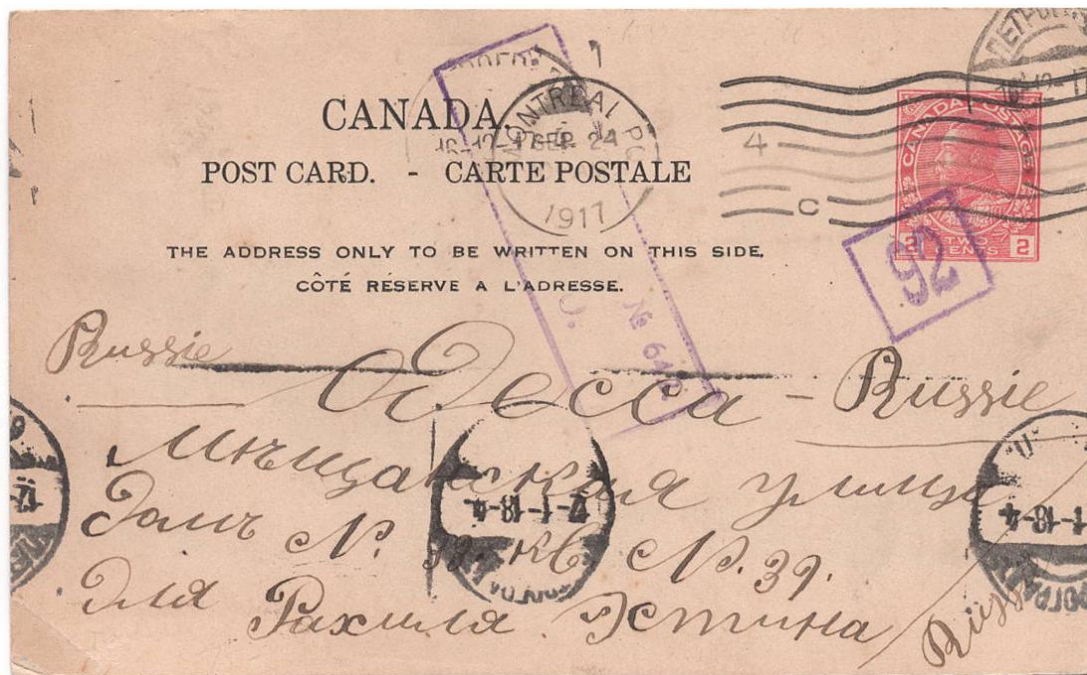 CANADA.
POST CARD. - CARTE POSTALE
THE ADDRESS ONLY TO BE WRITTEN ON THIS SIDE.
CÔTÉ RÉSERVE A L'ADRESSE.
MONTREAL P.Q.
SEP 24
1917
4
C
CANADA POSTAGE
2 TWO CENTS 2
92
№ 642
Russie
Одесса - Russie
Мѣщанская улица
Домъ N. 38. кв N. 39.
Для Рахиля Эстина
12-1-18-4
1-18-4